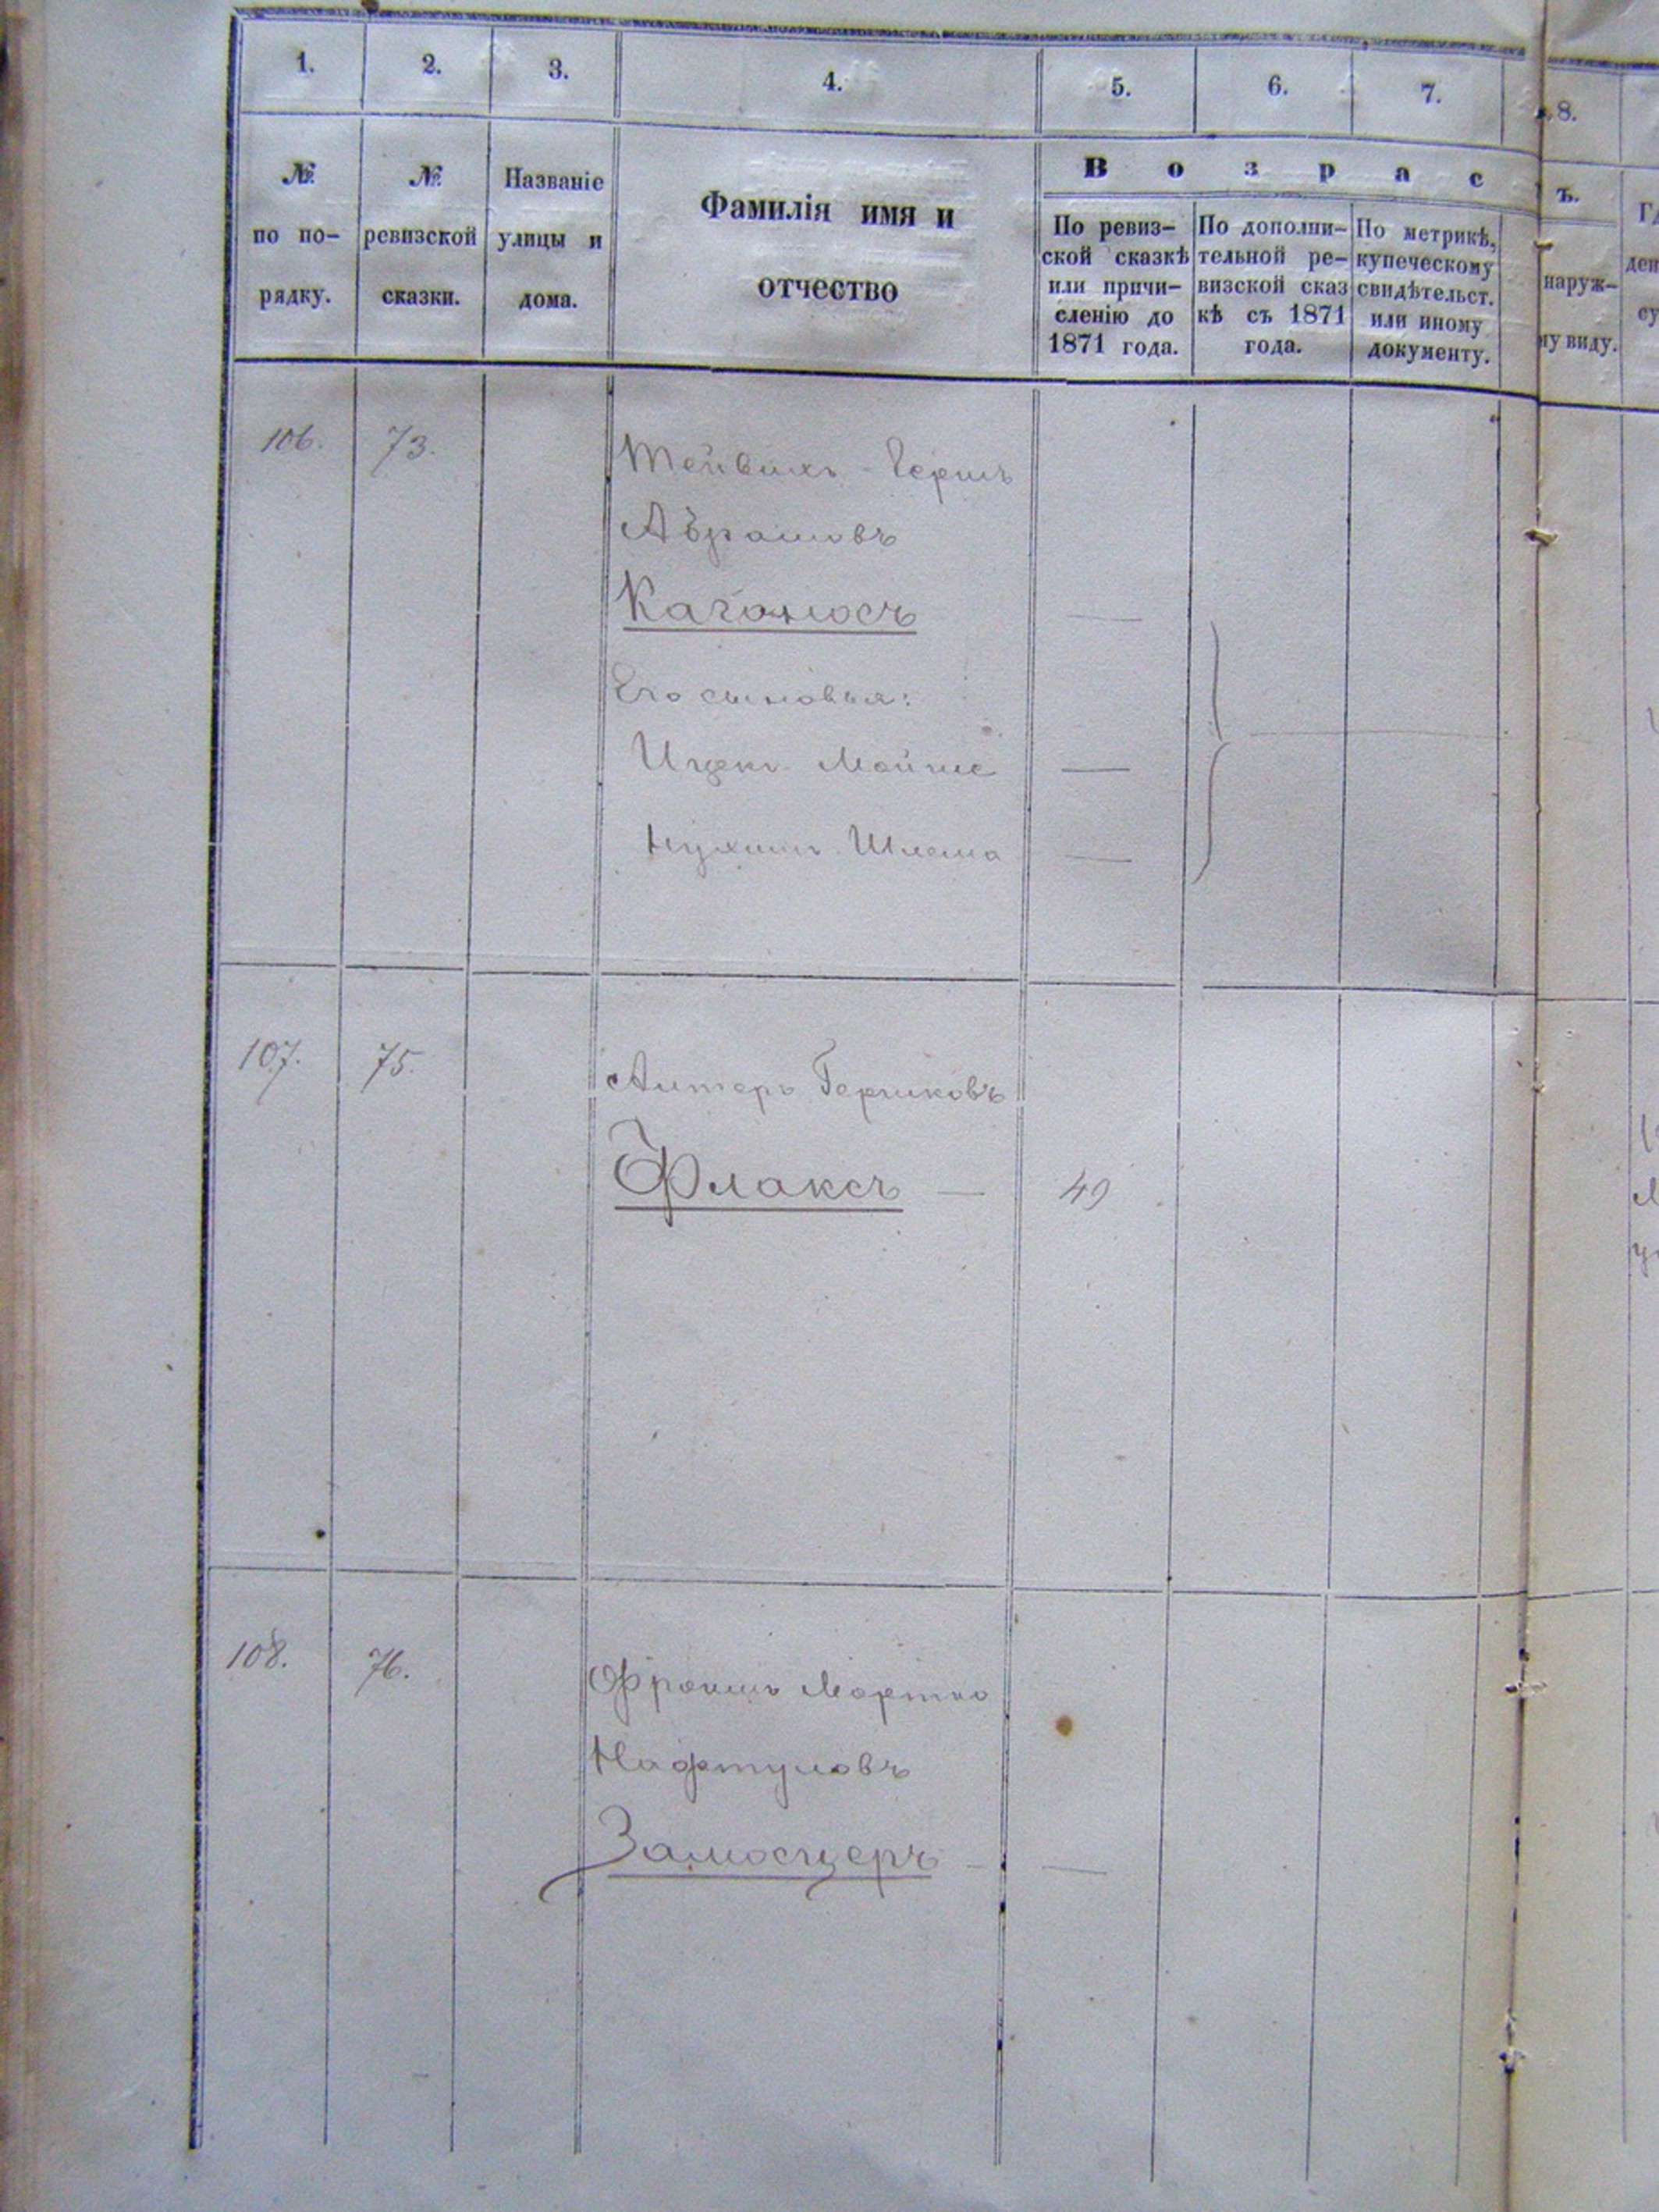 1. 2. 3. 4. 5. 6. 7. 8.
№ по по- рядку.
№ ревизской сказки.
Названіе улицы и дома.
Фамилія имя и
отчество
В о з р а с ъ.
По ревиз-
ской сказкѣ
или причи-
сленію до
1871 года.
По дополни-
тельной ре-
визской сказ
кѣ съ 1871
года.
По метрикѣ,
купеческому
свидѣтельст.
или иному
документу.
наруж-
му виду.
106. 73.
Гершъ
Абрамовъ
Каганосъ
Его сыновья:
Ицекъ Мойше
Нухимъ Шлема
107. 75.
Алтеръ Гершковъ
Флаксъ — 49
108. 76.
Фроимъ Мортко
Нафтуловъ
Замосцеръ